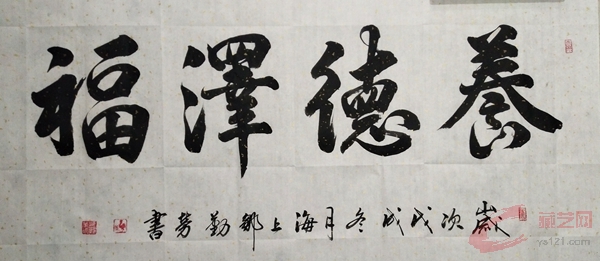 養德澤福
歲次戊戌冬月海上鄒勤勞書
ya121.com